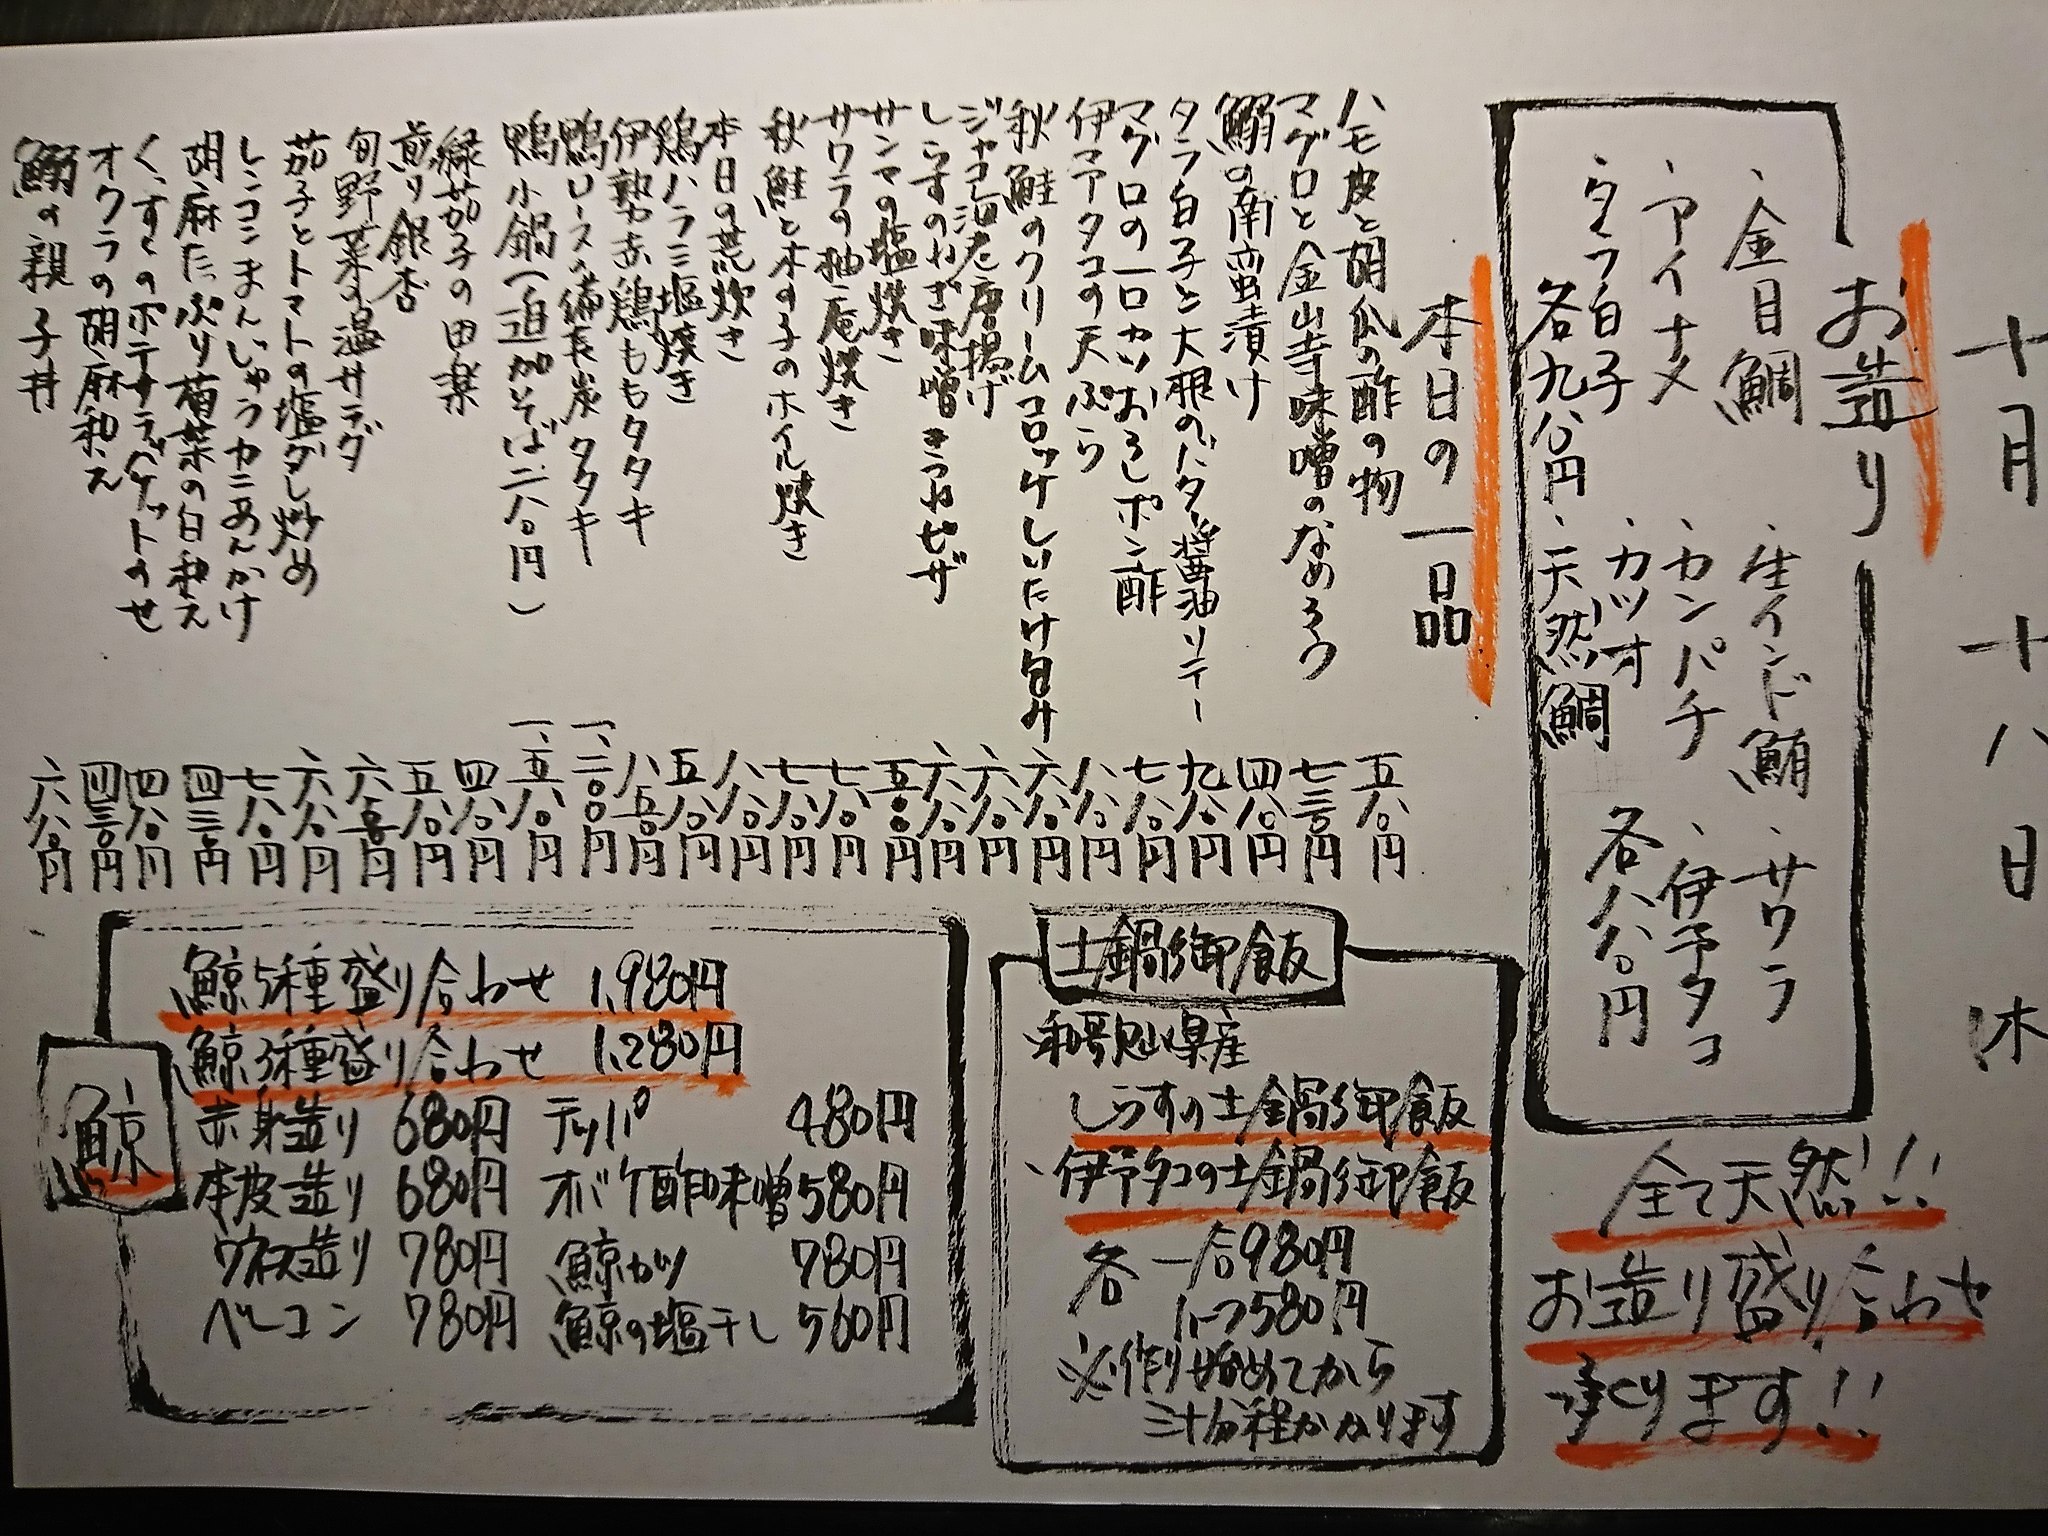 十月十八日 木
お造り
・金目鯛
・アイナメ
・タラ白子
各九八〇円
・生インド鮪
・カンパチ
・カツオ
・天然鯛
・サワラ
・伊予タコ
各八八〇円
全て天然!!
お造り盛り合わせ
承くります!!
本日の一品
ハモ皮と胡瓜の酢の物 五八〇円
マグロと金山寺味噌のなめろう 七三〇円
鰯の南蛮漬け 四八〇円
タラ白子と大根のバター醤油ソテー 九八〇円
マグロの一口カツおろしポン酢 七八〇円
伊予タコの天ぷら 八八〇円
秋鮭のクリームコロッケしいたけ包み 六八〇円
ジャコ海老唐揚げ 六八〇円
しらすのねぎ味噌きつねピザ 六八〇円
サンマの塩焼き 五〇〇円
サワラの柚庵焼き 七八〇円
秋鮭と木の子のホイル焼き 七八〇円
本日の荒炊き 八八〇円
鶏ハラミ塩焼き 五八〇円
伊勢赤鶏ももタタキ 八五〇円
鴨ロース備長炭タタキ 一、二〇〇円
鴨小鍋(追加そば二八〇円) 一、五八〇円
緑茄子の田楽 四八〇円
煎り銀杏 五八〇円
旬野菜の温サラダ 六五〇円
茄子とトマトの塩ダレ炒め 六八〇円
レンコンまんじゅうカニあんかけ 七八〇円
胡麻たっぷり菊菜の白和え 四三〇円
くんすくのポテサラバケットのせ 四八〇円
オクラの胡麻和え 四三〇円
鰯の親子丼 六八〇円
土鍋御飯
和歌山県産
しらすの土鍋御飯
・伊予タコの土鍋御飯
各 一合980円
1.5つ580円
※作り始めてから
三十分程かかります
鯨
鯨5種盛り合わせ 1,980円
鯨3種盛り合わせ 1,280円
赤身造り 680円 テッパ 480円
本皮造り 680円 オバケ酢味噌 580円
ウネス造り 780円 鯨カツ 780円
ベーコン 780円 鯨の塩干し 560円